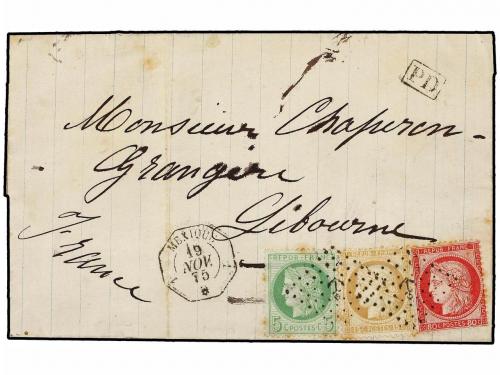 PD
Monsieur Chaperon-
Grangère
Libourne
France
MEXIQUE
19
NOV
75
REPUB · FRANC
5 C · POSTES · 5 C
REPUB · FRANC
15 C · POSTES · 15 C
REPUB · FRANC
80 C · POSTES · 80 C